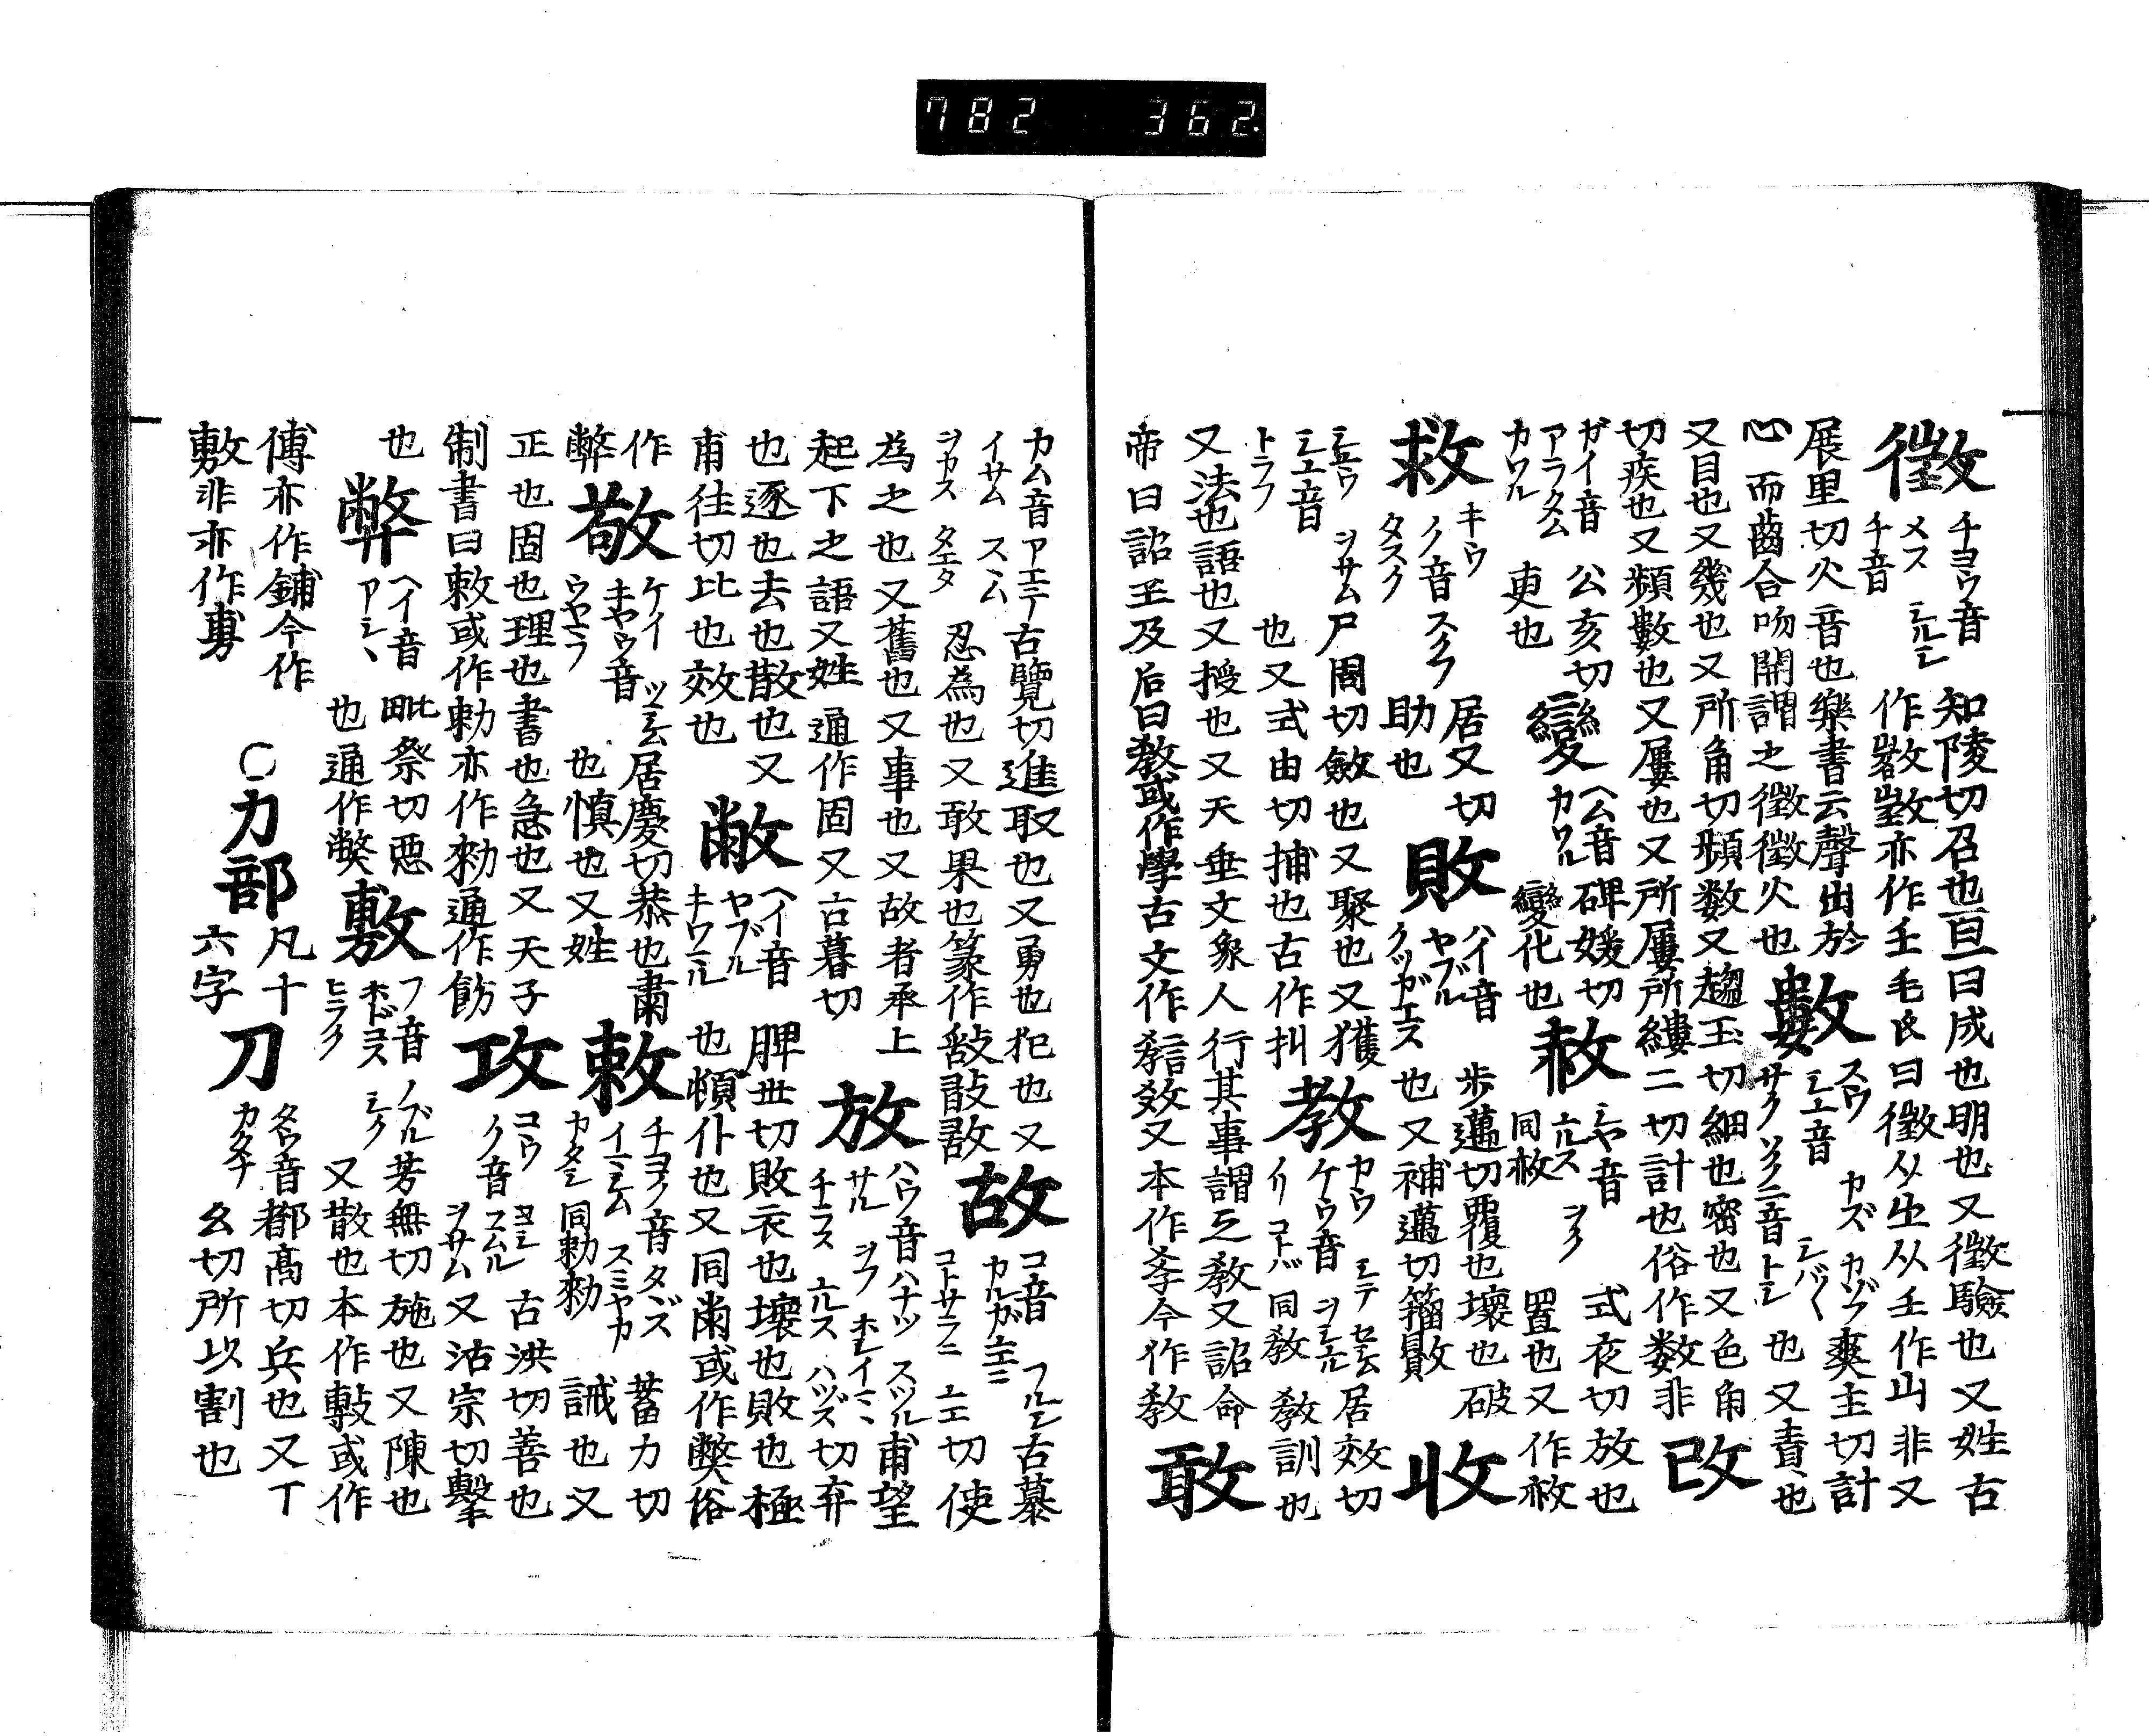 782 362
徵 チヨウ音 メス シルシ チ音 知陵切召也亘曰成也明也又徵驗也又姓古
作敳𢾷亦作𡈼毛氏曰徵从𡴋从𡈼作山非又
展里切火音也樂書云聲出於
心而齒合吻開謂之徵徵火也
數 スウ シユ音 サク ソク二音 カズ カゾフ シバ〱 爽主切計
也又責也
又目也又幾也又所角切頻数又趨玉切細也密也又色角
切疾也又頻數也又屢也又所屢所縷二切計也俗作数非
改 ガイ音 アラタム カワル 公亥切
更也
變 ヘム音 カワル 碑媛切
變化也
赦 シヤ音 ユルス ヲク 同赦 式夜切放也
置也又作赦
救 キウ ク音 スクフ タスク 居又切
助也
敗 ハイ音 ヤブル クツガエス 歩邁切覆也壞也破
也又補邁切籀𣀷
收 シユウ シユ音 ヲサム トラフ 尸周切斂也又聚也又獲
也又式由切捕也古作抖
教 カウ ケウ音 ヲシユル コトバ 同敎 居效切
教訓也
又法也語也又授也又天垂文象人行其事謂之教又詔命
帝曰詔王及后曰教或作學古文作𧧿效又本作孝今作教
敢
カム音 アエテ イサム スヽム ヲカス タエタ 古覽切進取也又勇也犯也又
忍為也又敢果也篆作𣪏𢽤敔
故 コ音 カルガユエニ コトサラニ フルシ ユエ 古慕
切使
為之也又舊也又事也又故者承上
起下之語又姓通作固又古暮切
放 ハウ音 ハナツ スツル サル ヲフ ホシイマヽ チラス ユルス ハヅス 甫望
切弃
也逐也去也散也又
甫往切比也效也
敝 ヘイ音 ヤブル キワマル 脾丗切敗衣也壞也敗也極
也頓仆也又同㡀或作獘俗
作
弊
敬 ケイ キヤウ音 ツヽシム ウヤマフ 居慶切恭也肅
也慎也又姓
敕 チヨク音 タダス イマシム スミヤカ カタシ 同勅勑 蓄力切
誡也又
正也固也理也書也急也又天子
制書曰敕或作勅亦作勑通作飭
攻 コウ ク音 ヲサム 古洪切善也
又沽宗切擊
也
弊 ヘイ音 アシヽ 毗祭切惡
也通作獘
敷 フ音 ノブル ホドコス シク ヒラク 芳無切施也又陳也
又散也本作尃攴或作
傅亦作鋪今作
敷非亦作旉
〇刀部 凡十
六字
刀 タウ音 カタナ 都高切兵也又丁
幺切所以割也